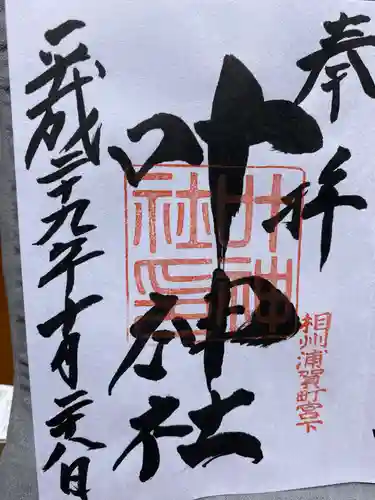 奉拝
相州浦賀町宮下
叶神社
叶神
社印
平成二十九年十月日